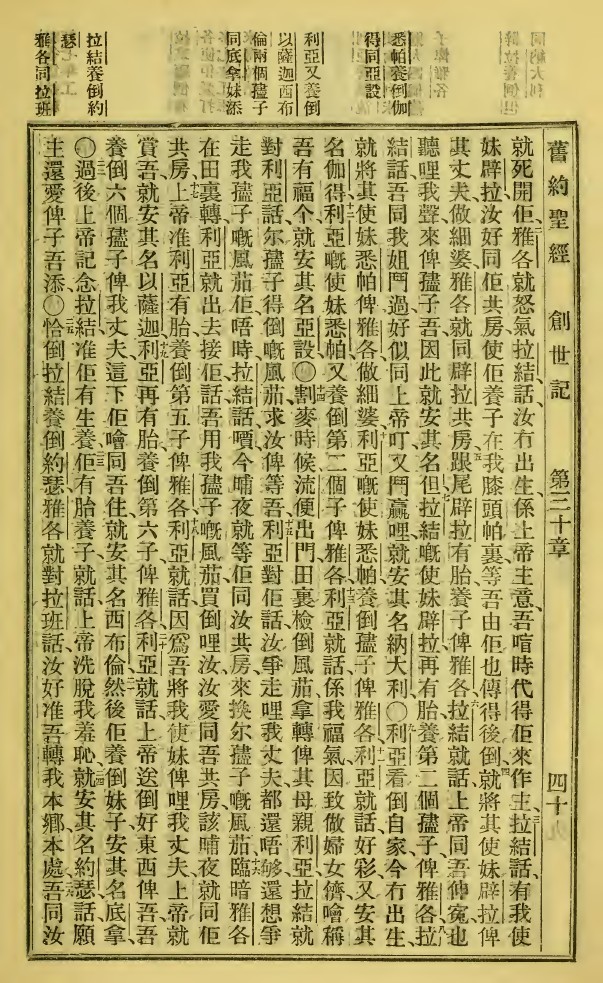 舊約聖經 創世記 第三十章 四十九
得同亞設
悉帕養倒伽
利亞又養倒
以薩迦西布
倫兩個孻子
同底拿妹添
拉結養倒約
瑟
雅各同拉班
就死開佢雅各就怒氣拉結話汝冇出生係上帝主意吾喧時代得佢來作主拉結話有我使
妹辟拉汝好同佢共房使佢養子在我膝頭帕裏等吾由佢也傳得後倒就將其使妹辟拉俾
其丈夫做細婆雅各就同辟拉共房跟尾辟拉有胎養子俾雅各拉結就話上帝同吾伸寃也
聽哩我聲來俾孻子吾因此就安其名但拉結嘅使妹辟拉再有胎養第二個孻子俾雅各拉
結話吾同我姐鬥過好似同上帝叮又鬥贏哩就安其名納大利〇利亞看倒自家今冇出生
就將其使妹悉帕俾雅各做細婆利亞嘅使妹悉帕養倒孻子俾雅各利亞就話好彩又安其
名伽得利亞嘅使妹悉帕又養倒第二個子俾雅各利亞就話係我福氣因致做婦女儕噲稱
吾有福个就安其名亞設〇割麥時候流便出門田裏檢倒風茄拿轉俾其母親利亞拉結就
對利亞話尔孻子得倒嘅風茄求汝俾等吾利亞對佢話汝爭走哩我丈夫都還唔够還想爭
走我孻子嘅風茄佢唔時拉結話嘪今晡夜就等佢同汝共房來換尔孻子嘅風茄臨暗雅各
在田裏轉利亞就出去接佢話吾用我孻子嘅風茄買倒哩汝汝愛同吾共房該晡夜就同佢
共房上帝准利亞有胎養倒第五子俾雅各利亞就話因爲吾將我使妹俾哩我丈夫上帝就
賞吾就安其名以薩迦利亞再有胎養倒第六子俾雅各利亞就話上帝送倒好東西俾吾吾
養倒六個孻子俾我丈夫這下佢噲同吾住就安其名西布倫然後佢養倒妹子安其名底拿
〇過後上帝記念拉結准佢有生養佢有胎養子就話上帝洗脫我羞恥就安其名約瑟話願
主還愛俾子吾添〇恰倒拉結養倒約瑟雅各就對拉班話汝好准吾轉我本鄉本處吾同汝